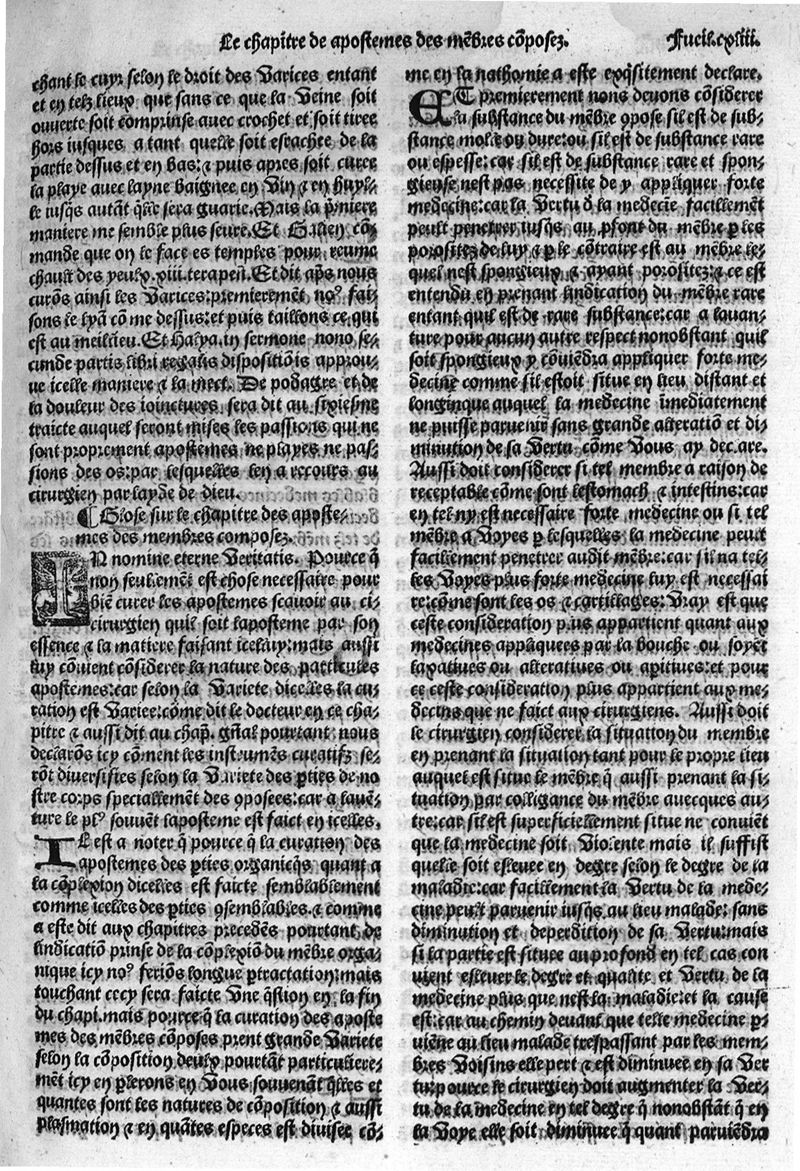 Le chapitre de apostemes des mẽbres cõposez. Fueil. cxliii.
chant le cuyr selon le droit des Varices entant
et en telz lieux que sans ce que la Veine soit
ouuerte soit comprinse auec crochet et soit tiree
hors iusques a tant quelle soit esrachee de la
partie dessus et en bas: ⁊ puis apres soit curee
la playe auec layne baignee en Vin ⁊ en huyl-
le iusq̃s autãt q̃lle sera guarie. Mais la p̃miere
maniere me semble plus seure. Et Galien cõ-
mande que on le face es temples pour reume
chault des yeulx. xiii. terapeñ. Et dit ap̃s nous
curõs ainsi les Varices: premieremẽt no⁹ fai-
sons le lyã cõme dessus: et puis taillons ce qui
est au meilieu. Et Halya. in sermone nono se-
cunde partis libri regalis dispositiõis approu-
ue icelle maniere ⁊ la mect. De podagre et de
la douleur des ioinctures sera dit au sixiesme
traicte auquel seront mises les passions qui ne
sont proprement apostemes ne playes ne pas-
sions des os: par lesquelles len a recours au
cirurgien par layde de dieu.
¶ Glose sur le chapitre des aposte-
mes des membres composez.
IN nomine eterne Veritatis. Pource q̃
non seulemẽt est chose necessaire pour
biẽ curer les apostemes scauoir au ci-
cirurgien quil soit laposteme par son
essence ⁊ la matiere faisant icelluy: mais aussi
luy cõuient cõsiderer la nature des particules
apostemes: car selon la Variete dicelles la cu-
ration est Variee: cõme dit le docteur en ce cha-
pitre ⁊ aussi dit au chap̃. gñal pourtant nous
declarõs icy cõment les instrumẽs curatifz se-
rõt diuersifies selon la Variete des p̃ties de no
stre corps speciallement des ꝯposees: car a lauẽ-
ture le pl⁹ souuẽt laposteme est faict en icelles.
IL est a noter q̃ pource q̃ la curation des
apostemes des p̃ties organicq̃s quant a
la cõplexion dicelles est faicte semblablement
comme icelles des p̃ties ꝯsemblables. ⁊ comme
a este dit aux chapitres precedẽs pourtant de
lindicatiõ prinse de la cõplexiõ du mẽbre orga-
nique icy no⁹ feriõs longue p̃tractation: mais
touchant cecy sera faicte Vne q̃stion en la fin
du chapi. mais pource q̃ la curation des aposte
mes des mẽbres cõposes prent grande Variete
selon la cõposition deulx pourtãt particuliere-
mẽt icy en p̃lerons en Vous souuenãt q̃lles et
quantes sont les natures de cõposition ⁊ aussi
plasmation ⁊ en quãtes especes est diuisee cõ-
me en la nathomie a este exq̃sitement declare.
ET premierement nous deuons cõsiderer
la substance du mẽbre ꝯpose sil est de sub-
stance molle ou dure: ou sil est de substance rare
ou espesse: car sil est de substance rare et spon-
gieuse nest pas necessite de y appliquer forte
medecine: car la Vertu d̃ la medecie facillemẽt
peult penetrer iusq̃s au p̃font du mẽbre p̃ les
porositez de luy ⁊ p̃ le cõtraire est au mẽbre le-
quel nest spongieux ⁊ ayant porositez: ⁊ ce est
entendu en prenant lindication du mẽbre rare
entant quil est de rare substance: car a lauan-
ture pour aucun autre respect nonobstant quil
soit spongieux y cõuiẽdra appliquer forte me-
decine comme sil estoit situe en lieu distant et
longinque auquel la medecine ĩmediatement
ne puisse paruenir sans grande alteratiõ et di-
minution de sa Vertu cõme Vous ay declare.
Aussi doit considerer si tel membre a raison de
receptable cõme sont lestomach ⁊ intestins: car
en tel ny est necessaire forte medecine ou si tel
mẽbre a Voyes p̃ lesquelles la medecine peult
facillement penetrer audit mẽbre: car sil na tel-
les Voyes plus forte medecine luy est necessai
re: cõme sont les os ⁊ cartillages: Vray est que
ceste consideration plus appartient quant aux
medecines appliquees par la bouche ou soyẽt
laxatiues ou alteratiues ou apitiues: et pour
ce ceste consideration plus appartient aux me-
decins que ne faict aux cirurgiens. Aussi doit
le cirurgien considerer la situation du membre
en prenant la situation tant pour le propre lieu
auquel est situe le mẽbre q̃ aussi prenant la si-
tuation par colligance du mẽbre auecques au-
tre: car sil est superficiellement situe ne conuiẽt
que la medecine soit Violente mais il suffist
quelle soit esleuee en degre selon le degre de la
maladie: car facillement la Vertu de la mede-
cine peult paruenir iusq̃s au lieu malade: sans
diminution et deperdition de sa Vertu: mais
si la partie est situee au profond en tel cas con
uient esleuer le degre et qualite et Vertu de la
medecine plus que nest la maladie: et la cause
est: car au chemin deuant que telle medecine p̃-
uiẽne au lieu malade trespassant par les mem-
bres Voisins elle pert ⁊ est diminuee en sa Ver
tu: pource le cirurgien doit augmenter la Ver-
tu de la medecine en tel degre q̃ nonobstãt q̃ en
la Voye elle soit diminuee q̃ quant paruiẽdra